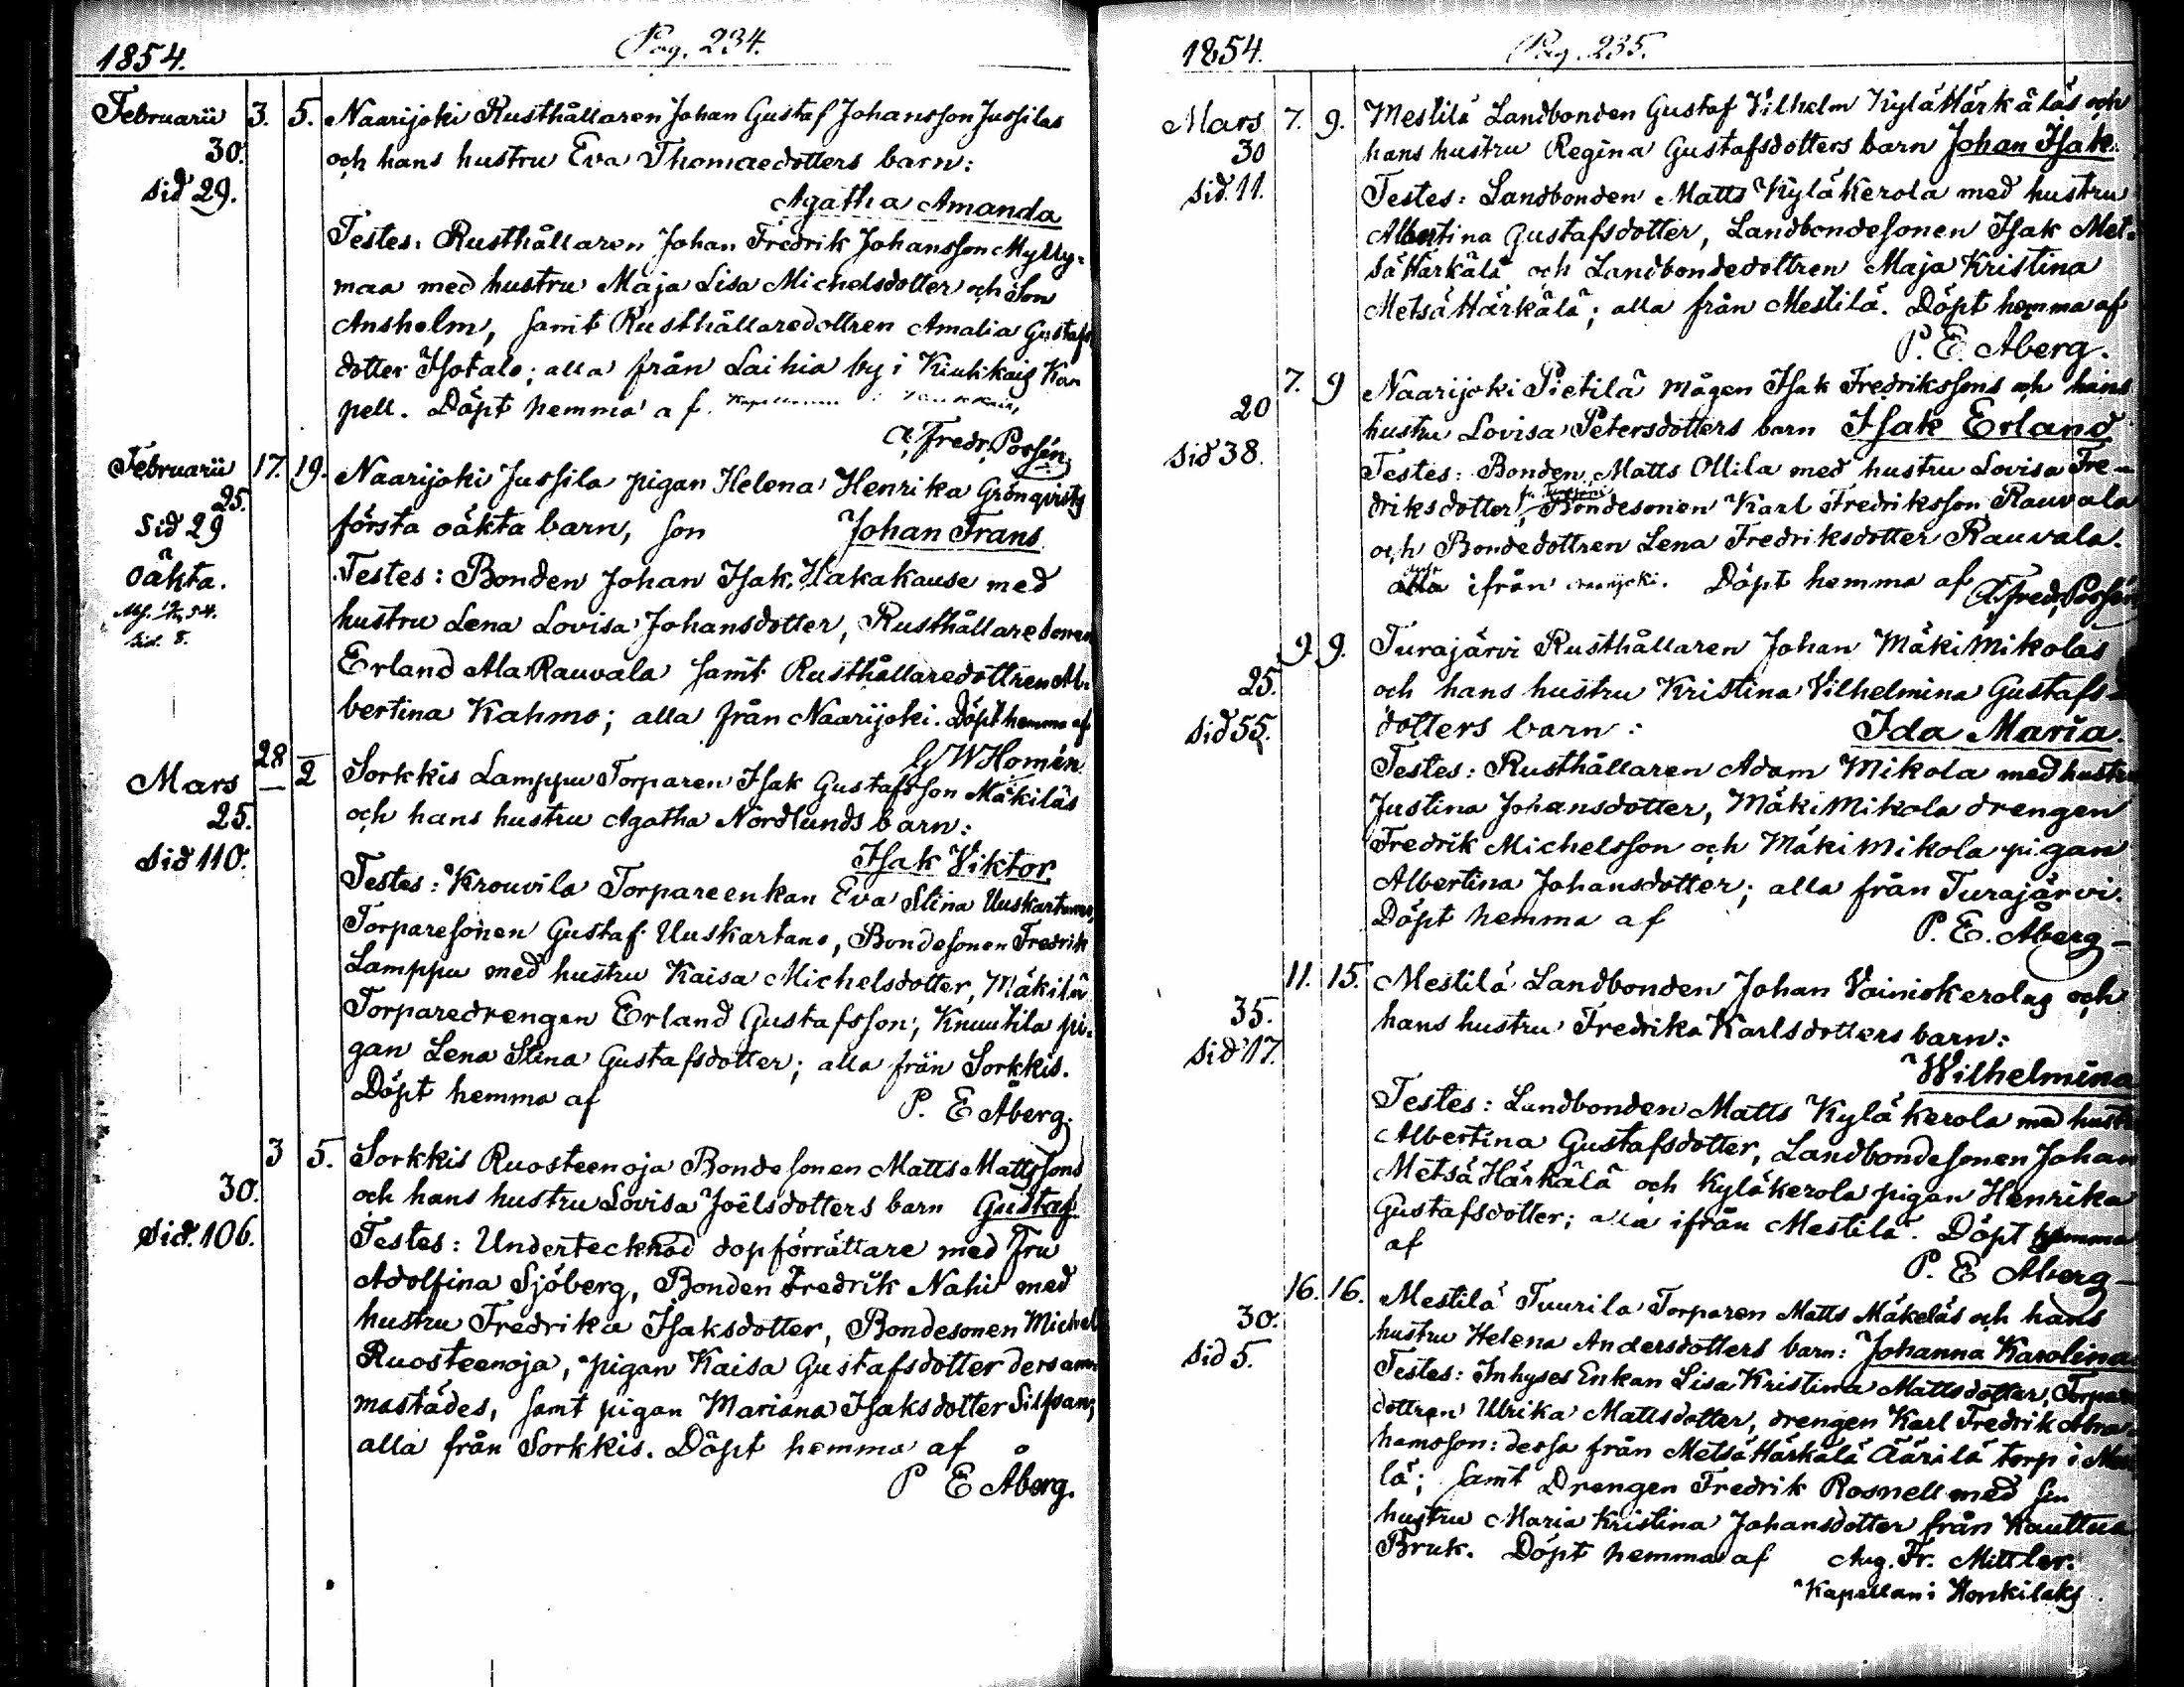 1854.
Pag. 234.
Februarii 3. 5. Naarijoki Rusthållaren Johan Gustaf Johansson Jussilas
30. och hans hustru Eva Thomaedotters barn:
Sid 29. Agatha Amanda
Testes: Rusthållaren Johan Fredrik Johansson Mylly-
maa med hustru Maja Lisa Michelsdotter och Son
Ansholm, samt Rusthållaredottren Amalia Gustafs
dotter Isotalo; alla från Laihia by i Kiukkais Ka
pell. Döpt hemma af
A. Fredr. Porsén
Februarii 17. 19. Naarijoki Jussila pigan Helena Henrika Grönqvists
25. första oäkta barn, son Johan Frans
Sid 29
oäkta. Testes: Bonden Johan Isak Hakakause med
hustru Lena Lovisa Johansdotter, Rusthållaresonen
Sid. 8.
Erland AlaRauvala samt Rusthållaredottren Al-
bertina Kahmo; alla från Naarijoki. Döpt hemma af
G W Homén
Mars 28 2 Sorkkis Lamppu Torparen Isak Gustafsson Mäkiläs
25. och hans hustru Agatha Nordlunds barn:
Sid 110. Isak Viktor
Testes: Krouvila Torpareenkan Eva Stina Uuskartano,
Torparesonen Gustaf Uuskartano, Bondesonen Fredrik
Lamppu med hustru Kaisa Michelsdotter, Mäkilä
Torparedrengen Erland Gustafsson, Knuutila pi-
gan Lena Stina Gustafsdotter; alla från Sorkkis.
Döpt hemma af P. E Åberg.
3 5. Sorkkis Ruosteenoja Bondesonen Matts Mattssons
30. och hans hustru Lovisa Joëlsdotters barn Gustaf
Sid. 106. Testes: Undertecknad dopförrättare med Fru
Adolfina Sjöberg, Bonden Fredrik Nahi med
hustru Fredrika Isaksdotter, Bondesonen Michel
Ruosteenoja, pigan Kaisa Gustafsdotter dersam
mastädes, samt pigan Mariana Isaksdotter Silpan;
alla från Sorkkis. Döpt hemma af
P E Åberg.
1854.
Pag. 235.
Mars 7. 9. Mestilä Landbonden Gustaf Vilhelm KyläHärkäläs och
30 hans hustru Regina Gustafsdotters barn Johan Isak.
Sid. 11. Testes: Landbonden Matts Kyläkerola med hustru
Albertina Gustafsdotter, Landbondesonen Isak Met-
säHärkälä och Landbondedottren Maja Kristina
MetsäHärkälä; alla från Mestilä. Döpt hemma af
P. E. Åberg.
7. 9 Naarijoki Pietilä mågen Isak Fredrikssons och hans
20 hustru Lovisa Petersdotters barn Isak Erland
Sid 38. Testes: Bonden Matts Ollila med hustru Lovisa Fre-
driksdotter, Bondesonen Karl Fredriksson Rauvala
och Bondedottren Lena Fredriksdotter Rauvala.
alla ifrån Naarijoki. Döpt hemma af A. Fredr. Porsén
9. 9. Turajärvi Rusthållaren Johan MäkiMikolas
25. och hans hustru Kristina Vilhelmina Gustafs-
Sid 55. dotters barn: Ida Maria.
Testes: Rusthållaren Adam Mikola med hustru
Justina Johansdotter, MäkiMikola drengen
Fredrik Michelsson och MäkiMikola pigan
Albertina Johansdotter; alla från Turajärvi.
Döpt hemma af P. E. Åberg
11. 15. Mestilä Landbonden Johan Vainiokerolas och
35. hans hustru Fredrika Karlsdotters barn:
Sid 17. Wilhelmina
Testes: Landbonden Matts Kyläkerola med hustru
Albertina Gustafsdotter, Landbondesonen Johan
MetsäHärkälä och Kyläkerola pigan Henrika
Gustafsdotter; alla ifrån Mestilä. Döpt hemma
af P. E Åberg
16. 16. Mestilä Tuurila Torparen Matts Mäkeläs och hans
30. hustru Helena Andersdotters barn: Johanna Karolina.
Sid 5. Testes: Inhyses Enkan Lisa Kristina Mattsdotter, Torpare
dottren Ulrika Mattsdotter, drengen Karl Fredrik Abra-
hamsson: dessa från MetsäHärkälä Äärilä torp i Mes
lä; samt Drengen Fredrik Rosnell med sin
hustru Maria Kristina Johansdotter från Kauttua
Bruk. Döpt hemma af Aug. Fr. Mittler.
Kapellan i Honkilaks